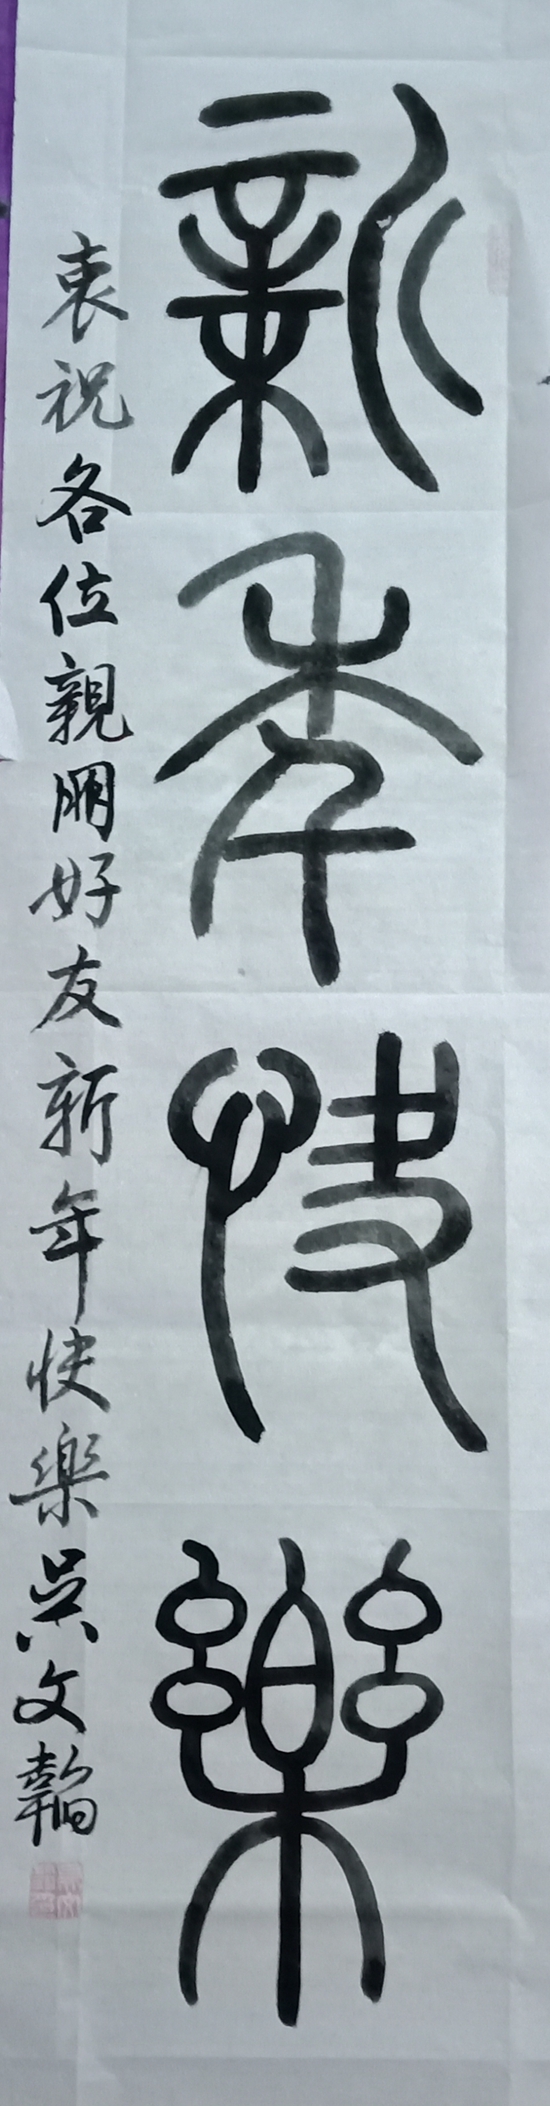 新年快樂
衷祝各位親朋好友新年快樂吳文韜